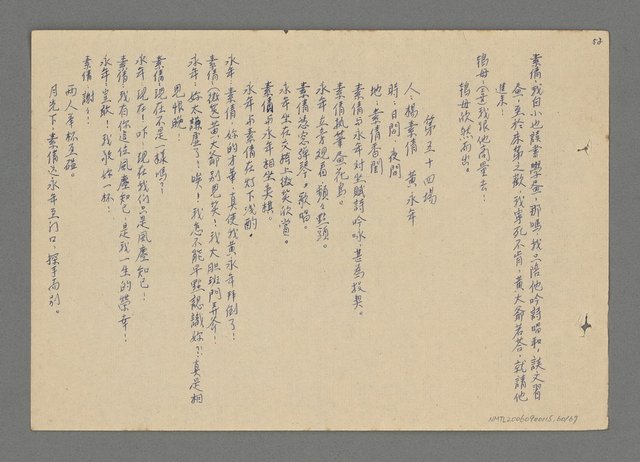 52
素倩：我自小也讀書學畫，那嗎，我只陪他吟詩唱和，談文習
畫，至於床笫之歡，我寧死不肯，黃大爺若答，就請他
進來！
鴇母：這我跟他商量去！
鴇母欣然而出。
第五十四場
人：楊素倩 黃永年
時：日間、夜間
地：素倩香閨
素倩與永年對坐賦詩吟咏，甚為投契。
素倩執筆畫花鳥。
永年立旁觀看，頻頻點頭。
素倩憑窗彈琴，歌唱。
永年坐在交椅上微笑欣賞。
素倩與永年相坐奕棋。
永年與素倩在灯下淺酌。
永年：素倩，妳的才華，真使我黃永年拜倒了！
素倩：（微笑）黃大爺別見笑！我大胆班門弄斧！
永年：妳太謙虛了！唉！我怎不能早點認識妳？真是相
見恨晚！
素倩：現在不是一樣嗎？
永年：現在！吓，現在我們只是風塵知己！
素倩：我有你這位風塵知己，是我一生的榮幸！
永年：豈敢！我敬妳一杯！
素倩：謝了！
兩人舉杯互碰。
月光下素倩送永年至门口，揮手而別。
NMTL20060900115_60/69